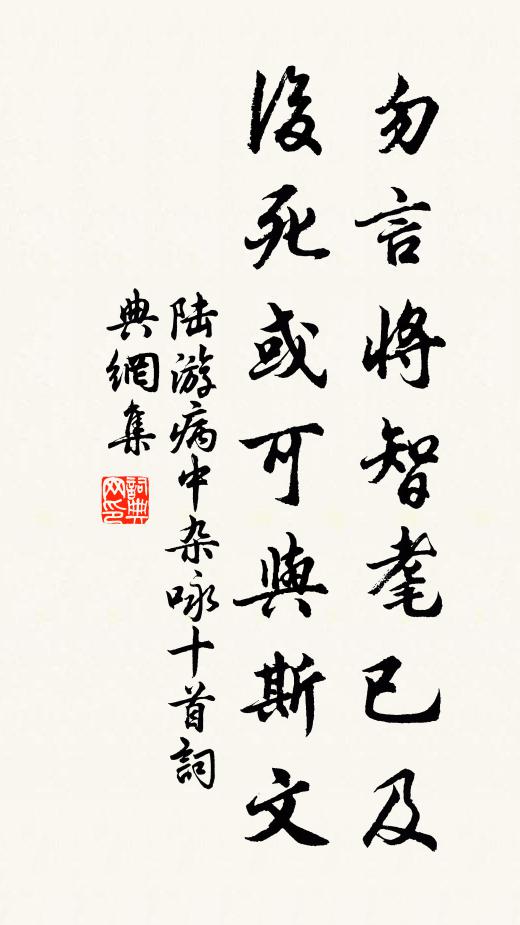 勿言將智耄已及
後死或可與斯文
陆游病中杂咏十首詞
典網集
詞典
网印